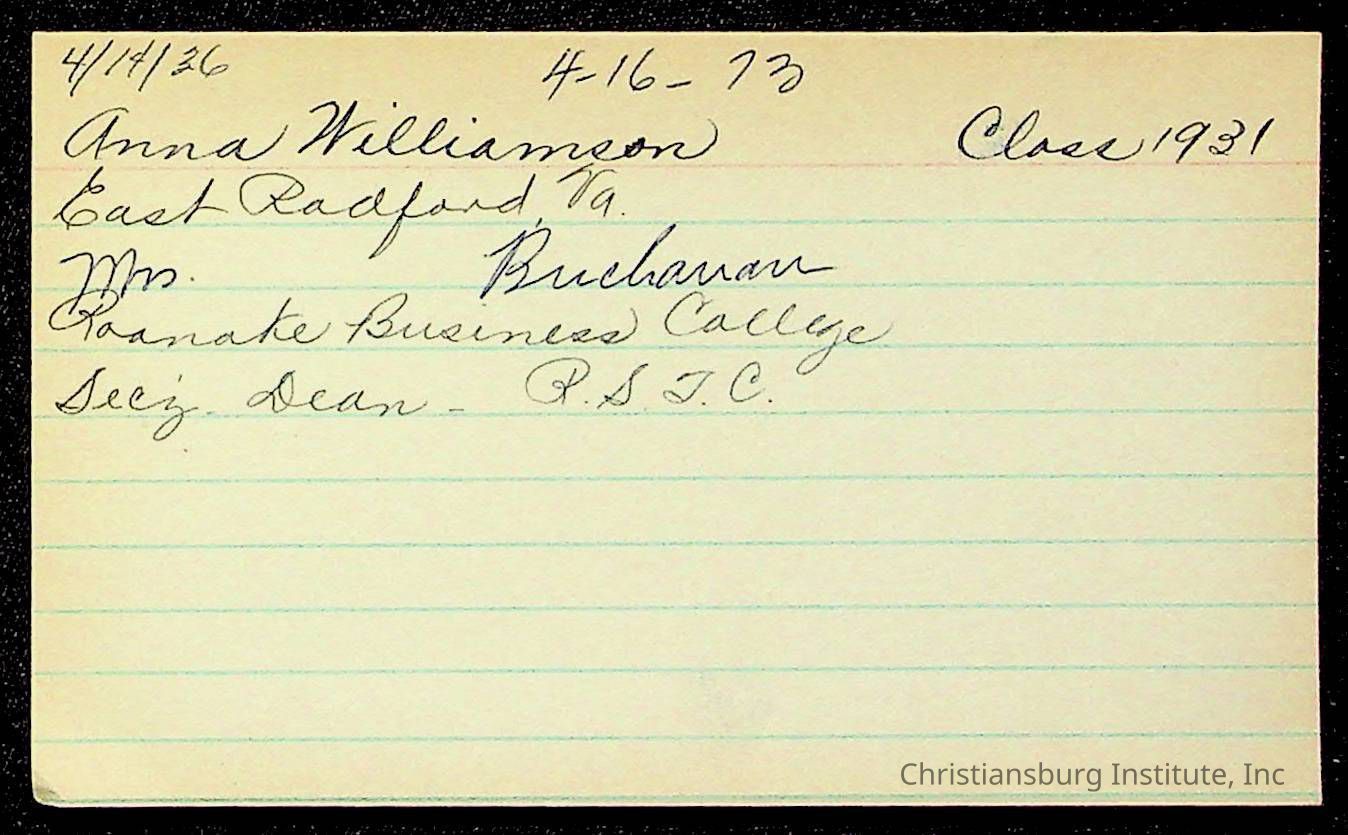 4/14/36 4-16-73
Anna Williamson Class 1931
East Radford, Va.
Mrs. Buchanan
Roanoke Business College
Sec'y. Dean - R.S.T.C.
Christiansburg Institute, Inc